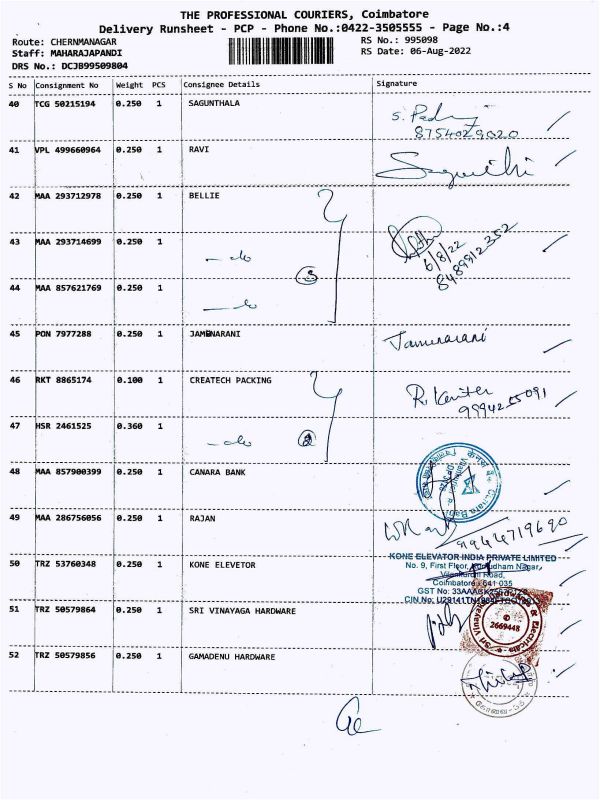 THE PROFESSIONAL COURIERS, Coimbatore
Delivery Runsheet - PCP - Phone No.:0422-3505555 - Page No.:4
Route: CHERNMANAGAR RS No.: 995098
Staff: MAHARAJAPANDI RS Date: 06-Aug-2022
DRS No.: DCJB99509804
S No Consignment No Weight PCS Consignee Details Signature
40 TCG 50215194 0.250 1 SAGUNTHALA
8754029020
41 VPL 499660964 0.250 1 RAVI
42 MAA 293712978 0.250 1 BELLIE
43 MAA 293714699 0.250 1 -do 3
6/8/22
8489912352
44 MAA 857621769 0.250 1 -do
45 PON 7977288 0.250 1 JAMUNARANI Jamunarani
46 RKT 8865174 0.100 1 CREATECH PACKING
47 HSR 2461525 0.360 1 -do 2
48 MAA 857900399 0.250 1 CANARA BANK
49 MAA 286756056 0.250 1 RAJAN
KONE ELEVATOR INDIA PRIVATE LIMITED
50 TRZ 53760348 0.250 1 KONE ELEVETOR No. 9, First Floor, Nagar,
Road,
Coimbatore - 641 035
51 TRZ 50579864 0.250 1 SRI VINAYAGA HARDWARE
2669448
52 TRZ 50579856 0.250 1 GAMADENU HARDWARE